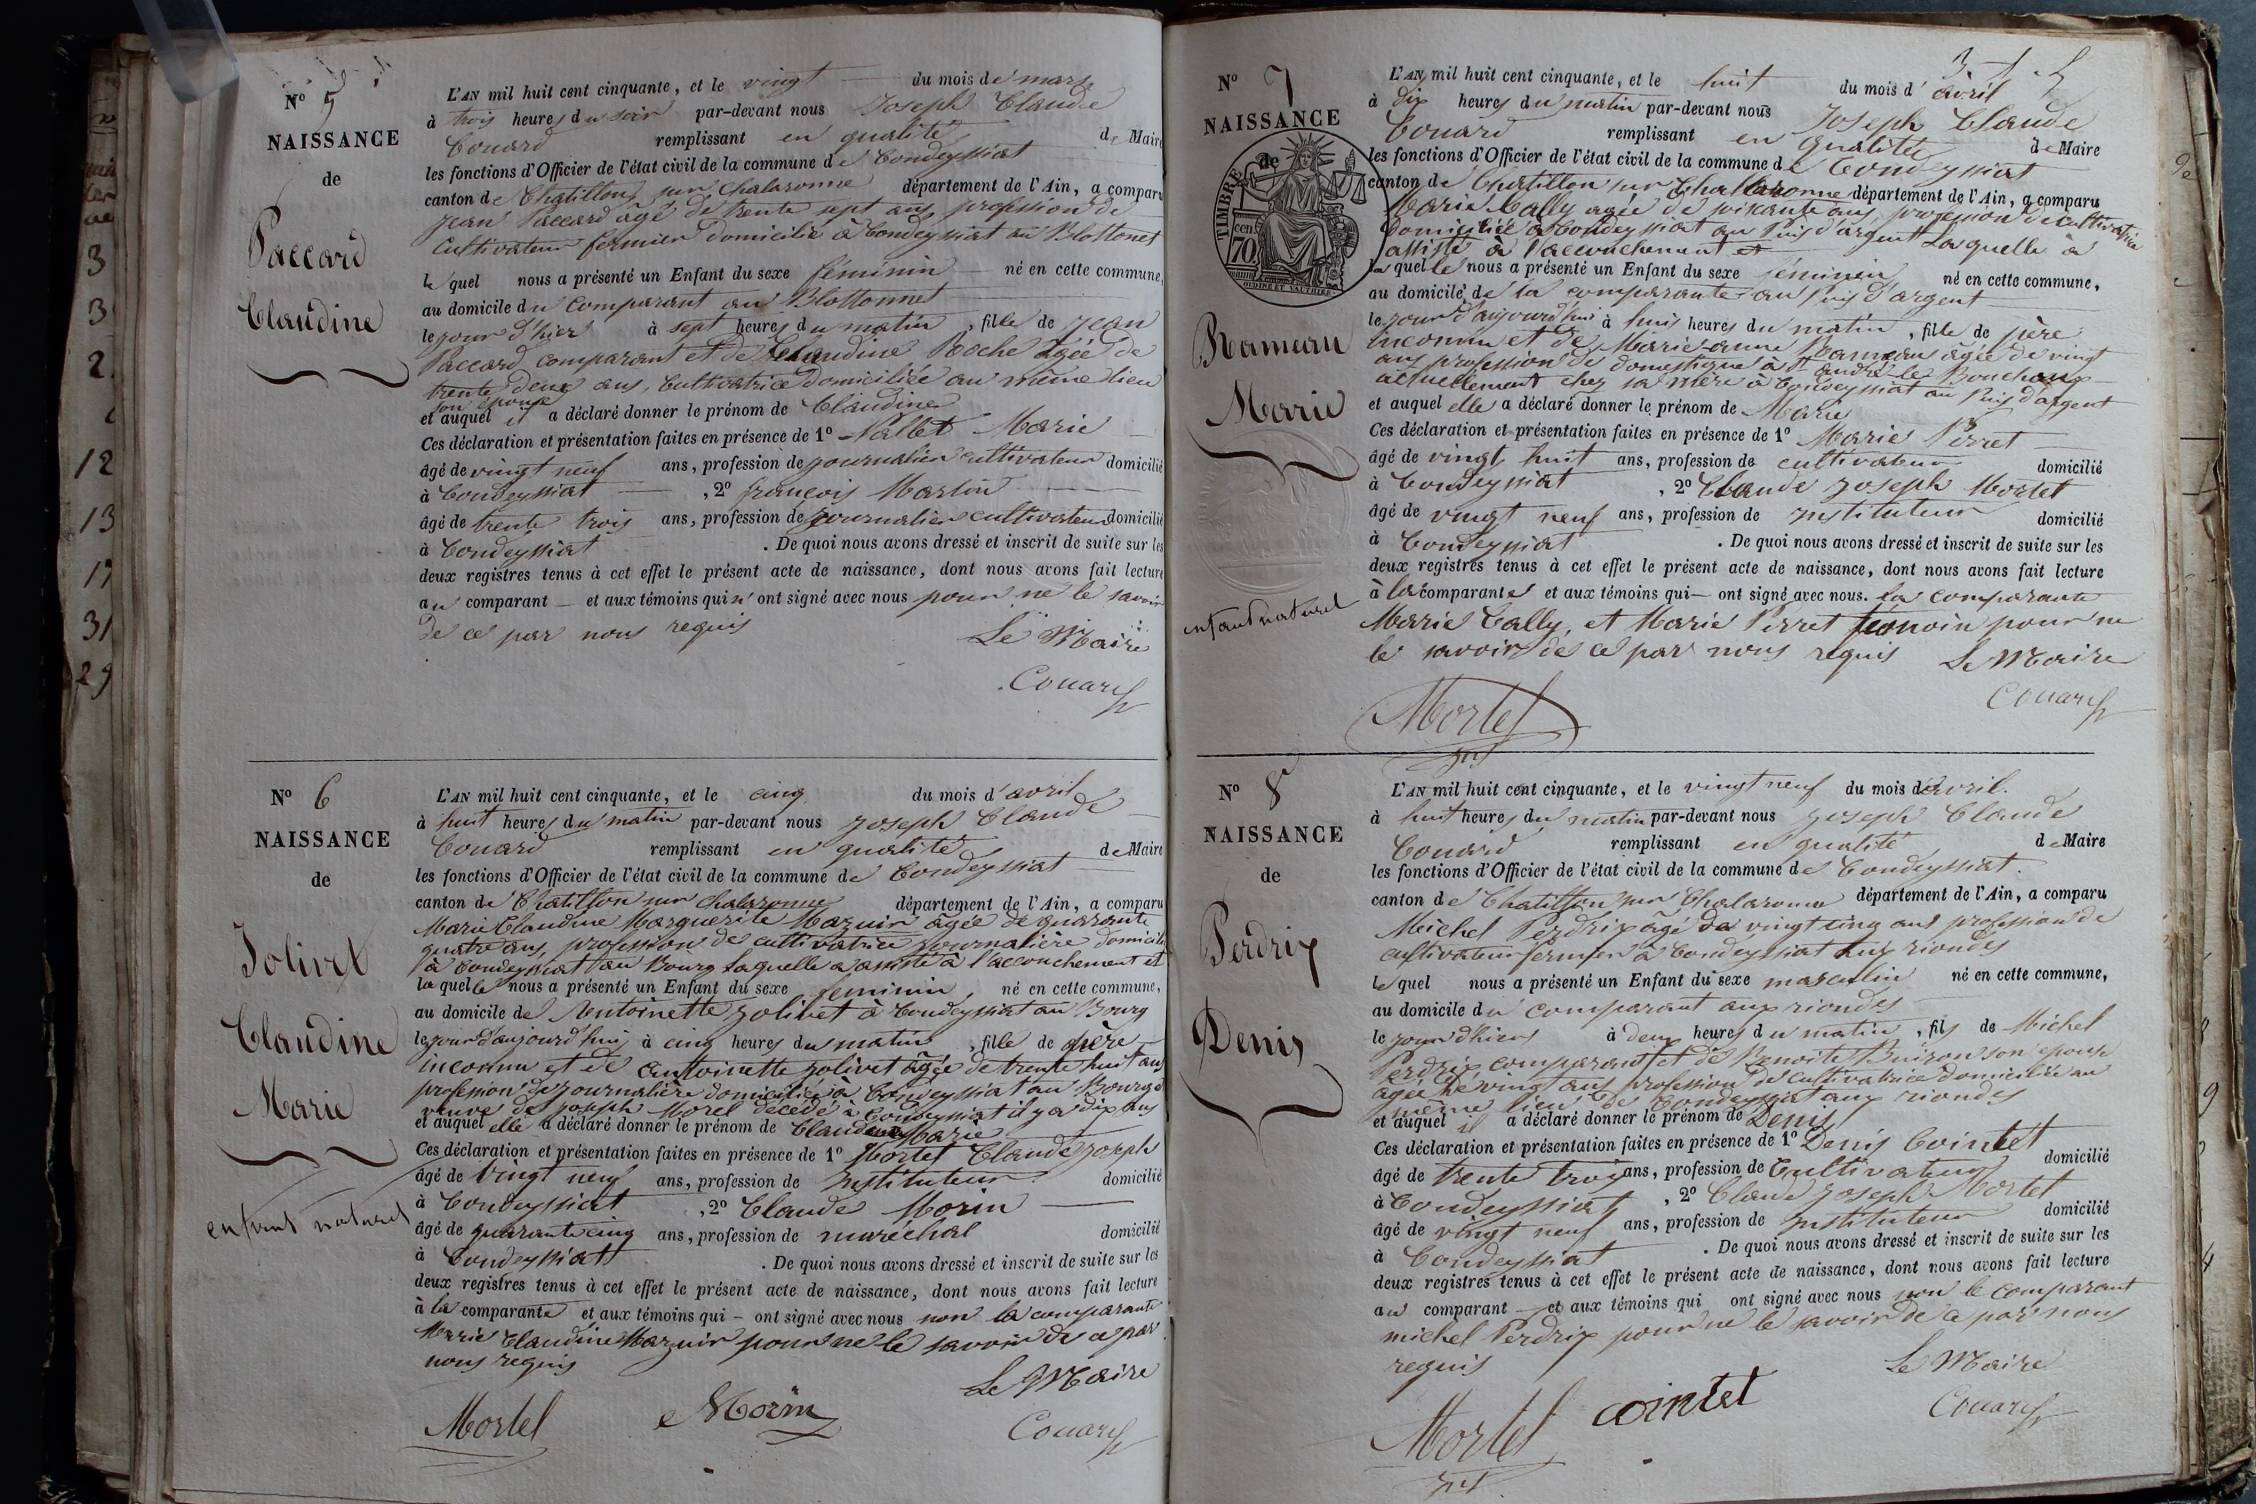 N° 5
NAISSANCE
de
Paccard
Claudine
L'AN mil huit cent cinquante, et le vingt du mois de mars
à trois heures du soir par-devant nous Joseph Claude
Couard remplissant en qualité de Maire
les fonctions d'Officier de l'état civil de la commune de Condeyssiat
canton de Chatillon sur Chalaronne département de l'Ain, a comparu
Jean Paccard âgé de trente sept ans profession de
Cultivateur fermier domicilié à Condeyssiat au Blottonet
lequel nous a présenté un Enfant du sexe féminin né en cette commune,
au domicile du comparant au Blottonnet
le jour d'hier à sept heures du matin, fille de Jean
Paccard comparant et de Claudine Roche âgée de
trente deux ans, Cultivatrice domiciliée au même lieu
son épouse
et auquel il a déclaré donner le prénom de Claudine
Ces déclaration et présentation faites en présence de 1° Nallet Marie
âgé de vingt neuf ans, profession de journalier cultivateur domicilié
à Condeyssiat, 2° françois Martin
âgé de trente trois ans, profession de journalier cultivateur domicilié
à Condeyssiat. De quoi nous avons dressé et inscrit de suite sur les
deux registres tenus à cet effet le présent acte de naissance, dont nous avons fait lecture
au comparant et aux témoins qui n'ont signé avec nous pour ne le savoir
de ce par nous requis Le Maire
Couard
N° 6
NAISSANCE
de
Jolivet
Claudine
Marie
enfant naturel
L'AN mil huit cent cinquante, et le cinq du mois d'avril
à huit heures du matin par-devant nous Joseph Claude
Couard remplissant en qualité de Maire
les fonctions d'Officier de l'état civil de la commune de Condeyssiat
canton de Chatillon sur Chalaronne département de l'Ain, a comparu
Marie Claudine Marguerite Mazuir âgée de quarante
quatre ans, profession de cultivatrice journalière domicilié
à Condeyssiat au Bourg Laquelle a assisté à l'accouchement et
laquelle nous a présenté un Enfant du sexe feminin, né en cette commune,
au domicile de Antoinette Jolivet à Condeyssiat au Bourg
le jour d'aujourd'hui à cinq heures du matin, fille de père
inconnu et de Antoinette Jolivet âgée de trente huit ans
profession de journalière domiciliée à Condeyssiat au Bourg
veuve de Joseph Morel décédé à Condeyssiat il y a dix ans
et auquel elle a déclaré donner le prénom de Claudine Marie
Ces déclaration et présentation faites en présence de 1° Mortel Claude Joseph
âgé de vingt neuf ans, profession de Instituteur domicilié
à Condeyssiat, 2° Claude Morin
âgé de quarante cinq ans, profession de maréchal domicilié
à Condeyssiat. De quoi nous avons dressé et inscrit de suite sur les
deux registres tenus à cet effet le présent acte de naissance, dont nous avons fait lecture
à la comparante et aux témoins qui – ont signé avec nous non la comparante
Marie Claudine Mazuir pour ne le savoir de ce par
nous requis
Le Maire
Mortel Morin Couard
N° 7
NAISSANCE
de
TIMBRE
70 cen
OUDINÉ ET VAUTHIER
Rameau
Marie
enfant naturel
L'AN mil huit cent cinquante, et le huit du mois d'avril
à dix heures du matin par-devant nous Joseph Claude
Couard remplissant en qualité de Maire
les fonctions d'Officier de l'état civil de la commune de Condeyssiat
canton de Chatillon sur Challaronne département de l'Ain, a comparu
Marie Cally agée de soixante ans, profession de cultivatrice
domiciliée à Condeyssiat au Puis d'argent Laquelle à
assisté à l'accouchement et
laquelle nous a présenté un Enfant du sexe féminin né en cette commune,
au domicile de la comparante au Puis d'argent
le jour d'aujourd'hui à huis heures du matin, fille de père
inconnu et de Marie-anne Rameau âgée de vingt
ans profession de domestique à St andré le Bouchoux
actuellement chez sa mère à Condeyssiat au Puis d'argent
et auquel elle a déclaré donner le prénom de Marie
Ces déclaration et présentation faites en présence de 1° Marie Perret
âgé de vingt huit ans, profession de cultivateur domicilié
à Condeyssiat, 2° Claude Joseph Mortel
âgé de vingt neuf ans, profession de Instituteur domicilié
à Condeyssiat. De quoi nous avons dressé et inscrit de suite sur les
deux registres tenus à cet effet le présent acte de naissance, dont nous avons fait lecture
à la comparante et aux témoins qui – ont signé avec nous. la comparante
Marie Cally, et Marie Perret témoin pour ne
le savoir de ce par nous requis Le Maire
Couard
Mortel
N° 8
NAISSANCE
de
Perdrix
Denis
L'AN mil huit cent cinquante, et le vingt neuf du mois d'avril.
à huit heures du matin par-devant nous Joseph Claude
Couard remplissant en qualité de Maire
les fonctions d'Officier de l'état civil de la commune de Condeyssiat.
canton de Chatillon sur Chalaronne département de l'Ain, a comparu
Michel Perdrix âgé de vingt cinq ans profession de
cultivateur fermier à Condeyssiat aux riondes
lequel nous a présenté un Enfant du sexe masculin né en cette commune,
au domicile du comparant aux riondes
le jour d'hier à deux heures du matin, fils de Michel
Perdrix comparant et de Benoite Buiron son epouse
agée de vingt ans profession de cultivatrice domiciliée au
même lieu de Condeyssiat aux riondes
et auquel il a déclaré donner le prénom de Denis
Ces déclaration et présentation faites en présence de 1° Denis Cointet
âgé de trente trois ans, profession de Cultivateur domicilié
à Condeyssiat, 2° Claude Joseph Mortel
âgé de vingt neuf ans, profession de Instituteur domicilié
à Condeyssiat. De quoi nous avons dressé et inscrit de suite sur les
deux registres tenus à cet effet le présent acte de naissance, dont nous avons fait lecture
au comparant – et aux témoins qui ont signé avec nous non le comparant
michel Perdrix pour ne le savoir de ce par nous
requis Le Maire
Mortel cointet Couard